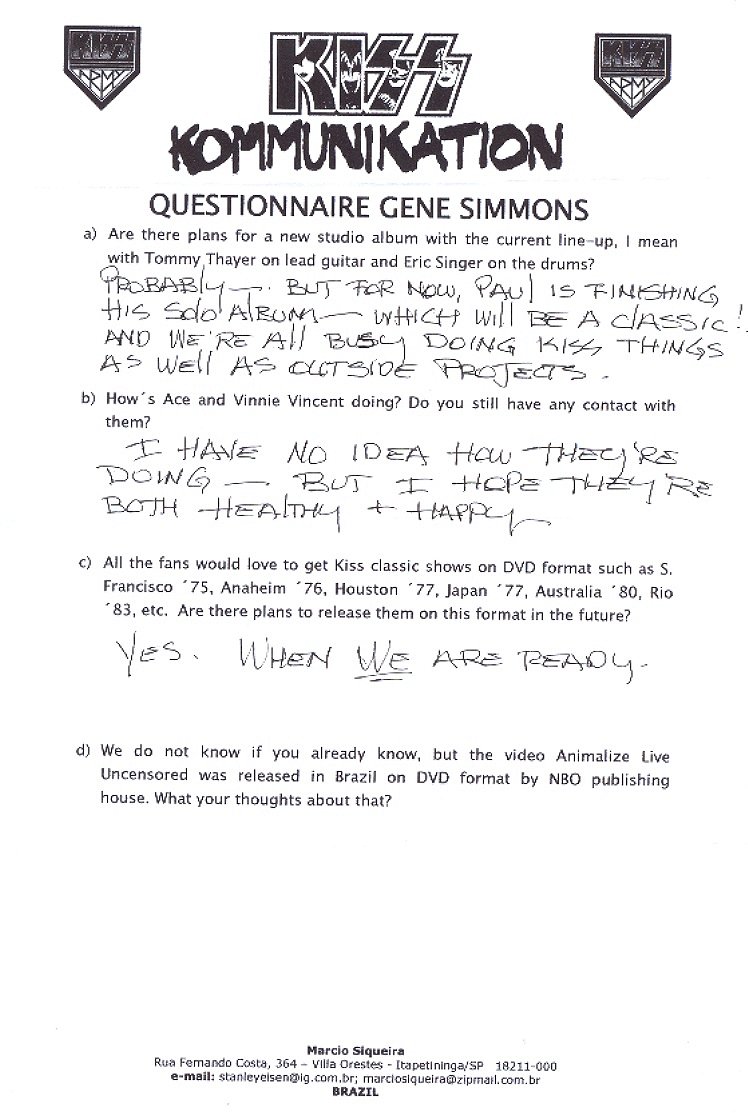 KISS
ARMY
KISS
KISS
ARMY
KOMMUNIKATION
QUESTIONNAIRE GENE SIMMONS
a) Are there plans for a new studio album with the current line-up, I mean
with Tommy Thayer on lead guitar and Eric Singer on the drums?
PROBABLY —. BUT FOR NOW, PAUL IS FINISHING
HIS SOLO ALBUM — WHICH WILL BE A CLASSIC!!
AND WE'RE ALL BUSY DOING KISS THINGS
AS WELL AS OUTSIDE PROJECTS.
b) How´s Ace and Vinnie Vincent doing? Do you still have any contact with
them?
I HAVE NO IDEA HOW THEY'RE
DOING — BUT I HOPE THEY'RE
BOTH HEALTHY + HAPPY
c) All the fans would love to get Kiss classic shows on DVD format such as S.
Francisco ´75, Anaheim ´76, Houston ´77, Japan ´77, Australia ´80, Rio
´83, etc. Are there plans to release them on this format in the future?
YES. WHEN WE ARE READY.
d) We do not know if you already know, but the video Animalize Live
Uncensored was released in Brazil on DVD format by NBO publishing
house. What your thoughts about that?
Marcio Siqueira
Rua Fernando Costa, 364 – Villa Orestes - Itapetininga/SP 18211-000
e-mail: stanleyeisen@ig.com.br; marciosiqueira@zipmail.com.br
BRAZIL